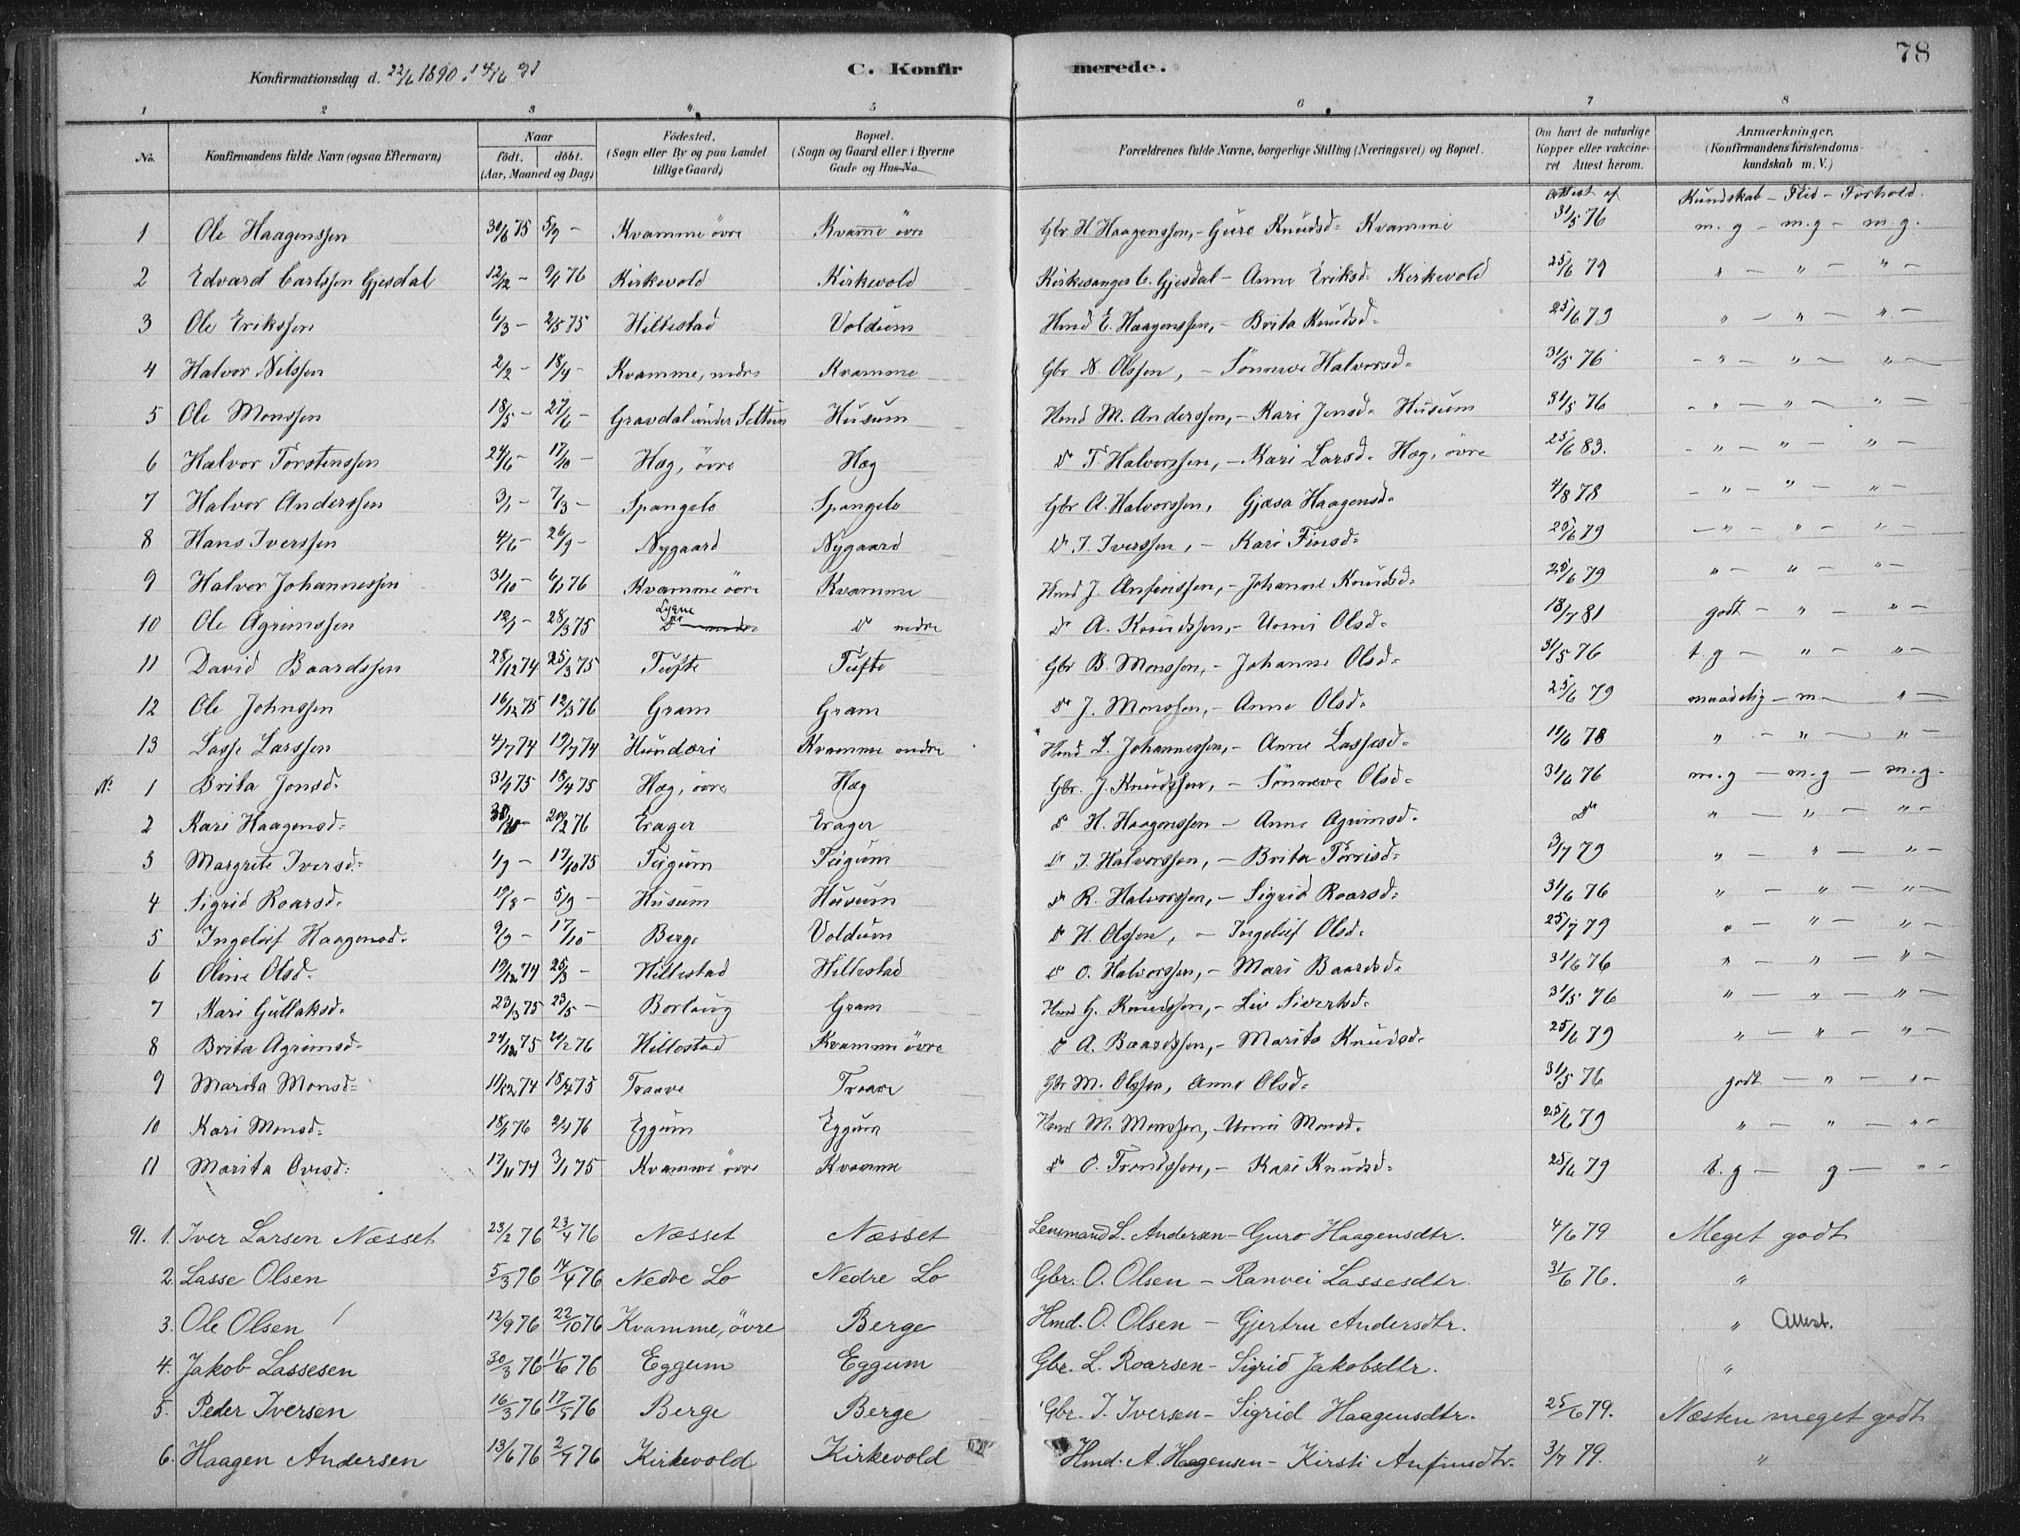 78
Konfirmationsdag d. 22/6 1890. 14/6 91
C. Konfirmerede.
1 2 3 4 5 6 7 8
No. Konfirmandens fulde Navn (ogsaa Efternavn) Naar födt. döbt. (Aar, Maaned og Dag) Födested. (Sogn eller By og paa Landet tillige Gaard) Bopæl. (Sogn og Gaard eller i Byerne Gade og Hus-No Forældrenes fulde Navne, borgerlige Stilling (Næringsvei) og Bopæl. Om havt de naturlige Kopper eller vakcineret Attest herom. Anmærkninger. (Konfirmandens Kristendomskundskab m. V.)
Attest af Kundskab - Flid - Forhold.
1 Ole Haagenssen 30/6 75 5/9 - Kvamme övre Kvamme övre Gbr H Haagenssen, - Guro Knudsd= Kvamme 31/5 76 m.g - m.g - m.g.
2 Edvard Carlssen Gjesdal 12/12 - 9/1 76 Kirkevold Kirkevold Kirkesanger C. Gjesdal - Anne Eriksd= Kirkevold 25/6 79 " - " - " -
3 Ole Erikssen 6/3 - 2/5 75 Hillestad Voldum Hmd E. Haagenssen, - Brita Knudsd= 25/6 79 " - " - " -
4 Halvor Nilssen 2/2 - 18/4 - Kvamme, nedre Kvamme Gbr N. Olssen, - Sönneve Halvorsd= 31/5 76 - " - " - " -
5 Ole Monssen 18/5 - 27/6 - Gravdal under Seltun Husum Hmd M. Anderssen, - Kari Jensd= Husum 31/5 76 - " - " - " -
6 Halvor Torstenssen 24/6 - 17/10 - Hæg, övre Hæg Do T Halvorssen, - Kari Larsd= Hæg, övre 25/6 83. - " - " - " -
7 Halvor Anderssen 3/1 - 7/3 - Spangelo Spangelo Gbr A. Halvorssen, Gjøsa Haagensd= 4/8 78 - " - " - " -
8 Hans Iverssen 4/6 - 26/9 - Nygaard Nygaard Do I. Iverssen, - Kari Finsd= 25/6 79 - " - " - " -
9 Halvor Johannessen 31/10 - 6/1 76 Kvamme övre Kvamme Hmd J. Anfinssen, - Johanne Knudsd= 25/6 79 " - " - " -
10 Ole Agrimssen 12/1 - 28/3 75 Lyrne Do nedre Do nedre Do A. Knudssen, - Unni Olsd= 18/7 81 godt - " - " -
11 David Baardssen 28/12 74 25/3 75 Tufte Tufte Gbr B. Monssen, - Johanne Olsd= 31/5 76 t.g - " - " -
12 Ole Johnssen 16/12 75 12/3 76 Gram Gram Do J. Monssen, - Anne Olsd= 25/6 79 maadelig - m - " -
13 Lasse Larssen 4/7 74 19/7 74 Hundæri Kvamme nedre Hmd L. Johannessen, - Anne Lassesd= 19/6 78 " - " - " -
No. 1 Brita Jonsd= 31/1 75 18/4 75 Hæg, övre Hæg Gbr. J. Knudssen, - Sönneve Olsd= 31/6 76 m.g - m.g - m.g.
2 Kari Haagensd= 30/10 - 20/2 76 Erager Erager Do H. Haagenssen - Anne Agrimsd= Do " - " - " -
3 Margrete Iversd= 1/9 - 17/10 75 Tugum Tugum Do I. Halvorssen, - Brita Torrisd= 3/7 79 " - " - " -
4 Sigrid Roarsd= 19/8 - 5/9 - Husum Husum Do R. Halvorssen, - Sigrid Roarsd= 31/6 76 " - " - " -
5 Ingeleif Haagensd= 9/9 - 17/10 - Berge Voldum Do H. Olssen, - Ingeleif Olsd= 25/7 79 " - " - " -
6 Oline Olsd= 19/12 74 25/3 - Hillestad Hillestad Do O. Halvorssen, - Mari Baardsd= 31/6 76 " - " - " -
7 Kari Gullaksd= 23/3 75 23/5 - Borlaug Gram Hmd G. Knudssen, - Liv Sivertsd= 31/5 76 " - " - " -
8 Brita Agrimsd= 24/12 75 20/2 76 Hillestad Kvamme övre Do A. Baardssen, - Marita Knudsd= 25/6 79 " - " - " -
9 Marita Monsd= 11/12 74 18/4 75 Traave Traave Gbr M. Olssen, Anne Olsd= 31/5 76 godt - " - " -
10 Kari Monsd= 18/1 76 2/4 76 Eggum Eggum Hmd M. Monssen, Unni Monsd= 25/6 79 " - " - " -
11 Marita Ovesd= 17/11 74 3/1 75 Kvamme övre Kvamme Do O. Trondssen, - Kari Knudsd= 25/6 79 t.g - g - " -
91. 1. Iver Larsen Næsset 23/2 76 23/4 76 Næsset Næsset Lensmand L. Andersen - Guro Haagensdtr. 4/6 79 Meget godt
2. Lasse Olsen 5/3 76 17/4 76 Nedre Lo Nedre Lo Gbr. O. Olsen - Ranvei Lassesdtr. 31/6 76. "
3. Ole Olsen 12/9 76 22/10 76 Kvamme, övre Berge Hmd. O. Olsen - Gjertru Andersdtr. " Attest.
4. Jakob Lassesen 30/3 76 11/6 76 Eggum Eggum Gbr. L. Roarsen - Sigrid Jakobsdtr. "
5. Peder Iversen 16/3 76 17/5 76 Berge Berge Gbr. I. Iversen - Sigrid Haagensdtr. 25/6 79. Næsten meget godt
6. Haagen Andersen 13/6 76 2/7 76 Kirkevold Kirkevold Hmd. A. Haagensen - Kirsti Anfinsdtr. 3/7 79. "